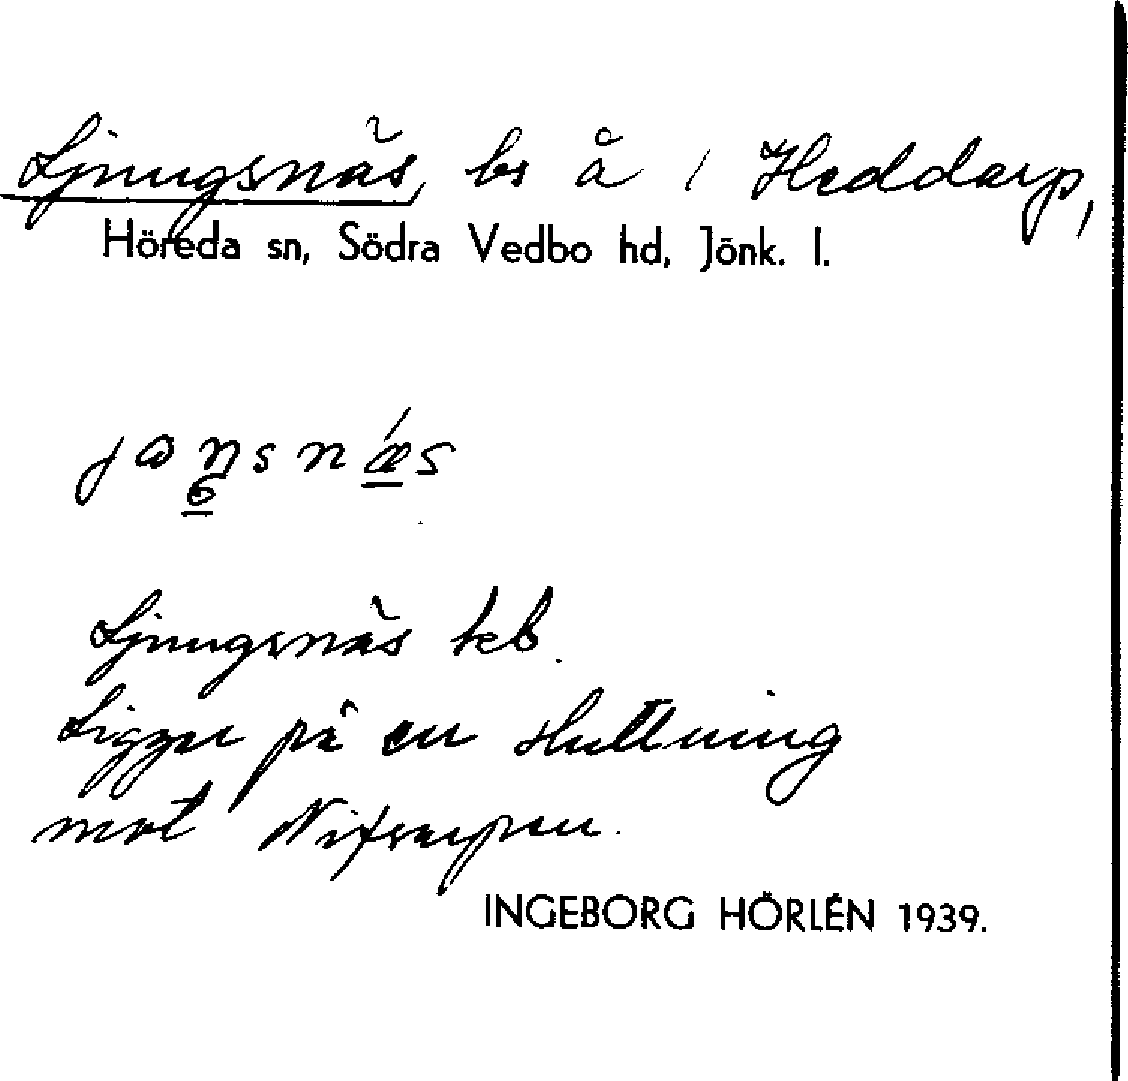 Ljungsnäs, bs å 1 Heddarp,
Höreda sn, Södra Vedbo hd, Jönk. l.
Ljungsnäs keb.
Ligger på en sluttning
mot
INGEBORG HÖRLÉN 1939.